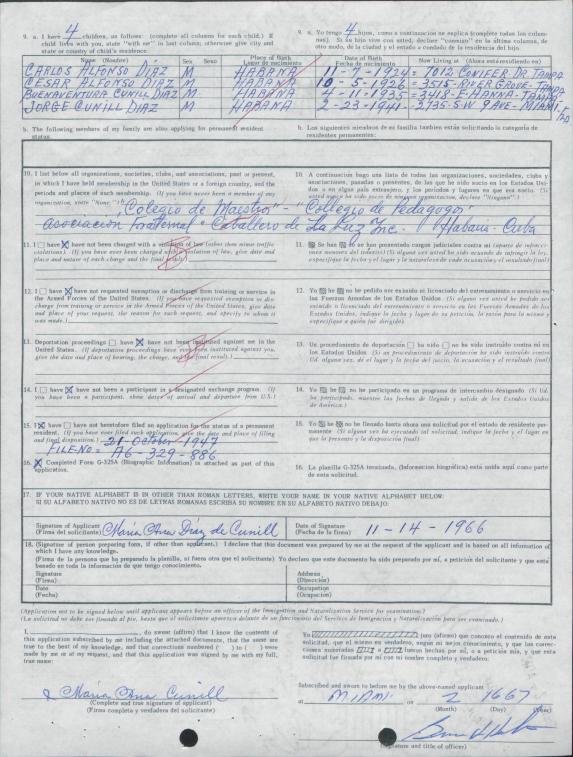 9. a. I have 4 children, as follows: (complete all columns for each child.) If
child lives with you, state "with me" in last column; otherwise give city and
state or country of child's residence.
9. a. Yo tengo 4 hijos, como a continuación se explica (complete todas las colum-
nas). Si su hijo vive con usted, declare "conmigo" en la última columna, de
otro modo, de la ciudad y el estado o condado de la residencia del hijo.
Name (Nombre) Sex Sexo Place of Birth Lugar de nacimiento Date of Birth Fecha de nacimiento Now Living at (Ahora está residiendo en)
CARLOS ALFONSO DIAZ M HABANA 11-7-1924 = 7012 CONIFER DR. TAMPA
CESAR ALFONSO DIAZ M HABANA 10-5-1926 = 3515-RIVER GROVE-TAMPA
BUENAVENTURA CUNILL DIAZ M HABANA 4-11-1935 = 3418-E. HANNA-TAMPA
JORGE CUNILL DIAZ M HABANA 2-23-1941-3735-S.W 9 AVE-MIAMI
b. The following members of my family are also applying for permanent resident
status.
b. Los siguientes miembros de mi familia también están solicitando la categoría de
residentes permanentes:
10. I list below all organizations, societies, clubs, and associations, past or present,
in which I have held membership in the United States or a foreign country, and the
periods and places of such membership. (If you have never been a member of any
organization, state "None".)
10. A continuación hago una lista de todas las organizaciones, sociedades, clubs y
asociaciones, pasadas o presentes, de las que he sido socio en los Estados Uni-
dos o en algún país extranjero, y los períodos y lugares en que era socio. (Si
usted nunca fue socio de ninguna organización, declare "Ninguna".)
"Colegio de Maestros" - "Collegio de Pedagogos
Asociación Fraternal "Caballero de La Luz Inc. Habana - Cuba
11. I have X have not been charged with a violation of law (other than minor traffic
violations). (If you have ever been charged with violation of law, give date
and place and nature of each charge and the final result)
11. Se han no se han presentado cargos judiciales contra mí (aparte de infrac-
ciones menores del tránsito) (Si alguna vez usted ha sido acusado de infringir la ley,
especifique la fecha y el lugar y la naturaleza de cada acusación y el resultado final)
12. I have X have not requested exemption or discharge from training or service in
the Armed Forces of the United States. (If you have requested exemption or dis-
charge from training or service in the Armed Forces of the United States, give date
and place of your request, the reason for each request, and specify to whom it
was made.)
12. Yo he no he pedido ser eximido ni licenciado del entrenamiento o servicio en
las Fuerzas Armadas de los Estados Unidos
13. Deportation proceedings have X have not been instituted against me in the
United States. (If deportation proceedings have ever been instituted against you,
give the date and place of hearing, the charge, and the final result.)
13. Un procedimiento de deportación ha sido no ha sido instruido contra mí en
los Estados Unidos (Si un procedimiento de deportación ha sido instruido contra
Ud. alguna vez, dé el lugar y la fecha del juicio, la acusación y el resultado final).
14. I have X have not been a participant in a designated exchange program. (If
you have been a participant, show dates of arrival and departure from U.S.)
14. Yo he no he participado en un programa de intercambio designado (Si Ud.
ha participado, muestre las fechas de llegada y salida de los Estados Unidos
de América.)
15. I X have have not heretofore filed an application for the status of a permanent
resident. (If you have ever filed such application, give the date and place of filing
and final disposition.) 21 October - 1947
FILE No= A6-329-886
15. Yo he no he llenado hasta ahora una solicitud por el estado de residente per-
manente (Si alguna vez ha ejecutado tal solicitud, indique la fecha y el lugar en
que la presentó y la disposición final)
16. X Completed Form G-325A (Biographic Information) is attached as part of this
application.
16. La planilla G-325A terminada, (Información biográfica) está unida aquí como parte
de esta solicitud.
17. IF YOUR NATIVE ALPHABET IS IN OTHER THAN ROMAN LETTERS, WRITE YOUR NAME IN YOUR NATIVE ALPHABET BELOW:
SI SU ALFABETO NATIVO NO ES DE LETRAS ROMANAS ESCRIBA SU NOMBRE EN SU ALFABETO NATIVO DEBAJO:
Signature of Applicant
(Firma del solicitante) María Ana Díaz de Cunill
Date of Signature
(Fecha de la firma) 11-14-1966
18. (Signature of person preparing form, if other than applicant.) I declare that this document was prepared by me at the request of the applicant and is based on all information of
which I have any knowledge.
(Firma de la persona que ha preparado la planilla, si fuera otra que el solicitante) Yo declaro que este documento ha sido preparado por mí, a petición del solicitante y que está
basado en toda la información de que tengo conocimiento.
Signature
(Firma)
Address
(Dirección)
Date
(Fecha)
Occupation
(Ocupación)
(Application not to be signed below until applicant appears before an officer of the Immigration and Naturalization Service for examination.)
(La solicitud no debe ser firmada al pie, hasta que el solicitante aparezca delante de un funcionario del Servicio de Inmigración y Naturalización para ser examinado.)
I, do swear (affirm) that I know the contents of
this application subscribed by me including the attached documents, that the same are
true to the best of my knowledge, and that corrections numbered ( ) to ( ) were
made by me or at my request, and that this application was signed by me with my full,
true name:
Yo juro (afirmo) que conozco el contenido de esta
solicitud, que el mismo es verdadero, según mi mejor conocimiento, y que las correc-
ciones numeradas a fueron hechas por mí, o a petición mía, y que esta
solicitud fue firmada por mí con mi nombre completo y verdadero:
María Ana Cunill
(Complete and true signature of applicant)
(Firma completa y verdadera del solicitante)
Subscribed and sworn to before me by the above-named applicant
at MIAMI on 2 16 67
(Month) (Day) (Year)
(Signature and title of officer)